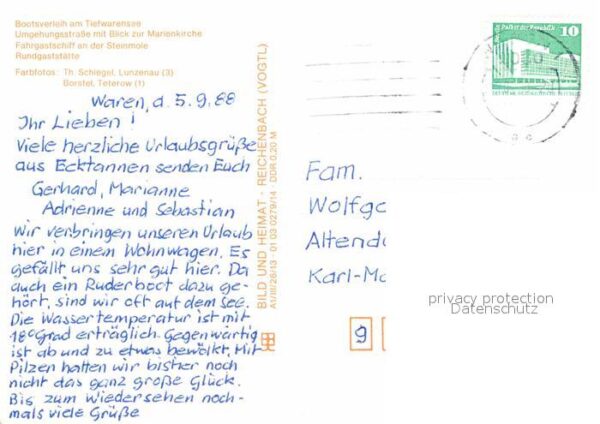 Bootsverleih am Tiefwarensee
Umgehungsstraße mit Blick zur Marienkirche
Fahrgastschiff an der Steinmole
Rundgaststätte
Farbfotos: Th. Schlegel, Lunzenau (3)
Borstel, Teterow (1)
Waren, d. 5.9.88
Ihr Lieben!
Viele herzliche Urlaubsgrüße
aus Ecktannen senden Euch
Gerhard, Marianne
Adrienne und Sebastian
Wir verbringen unseren Urlaub
hier in einem Wohnwagen. Es
gefällt uns sehr gut hier. Da
auch ein Ruderboot dazu ge-
hört, sind wir oft auf dem See.
Die Wassertemperatur ist mit
18° Grad erträglich. Gegenwärtig
ist ab und zu etwas bewölkt. Mit
Pilzen hatten wir bisher noch
nicht das ganz große Glück.
Bis zum Wiedersehen noch-
mals viele Grüße
BILD UND HEIMAT · REICHENBACH (VOGTL)
A1/III/26/13 · 01 03 0279/14 · DDR 0,20 M
Palast der Republik
10
Fam.
Wolfg
Altend
Karl-Ma
9
privacy protection
Datenschutz